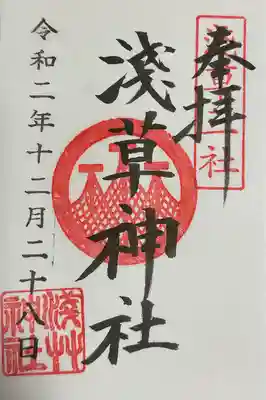 奉拝
浅草神社
令和二年十二月二十八日
淺艸神社